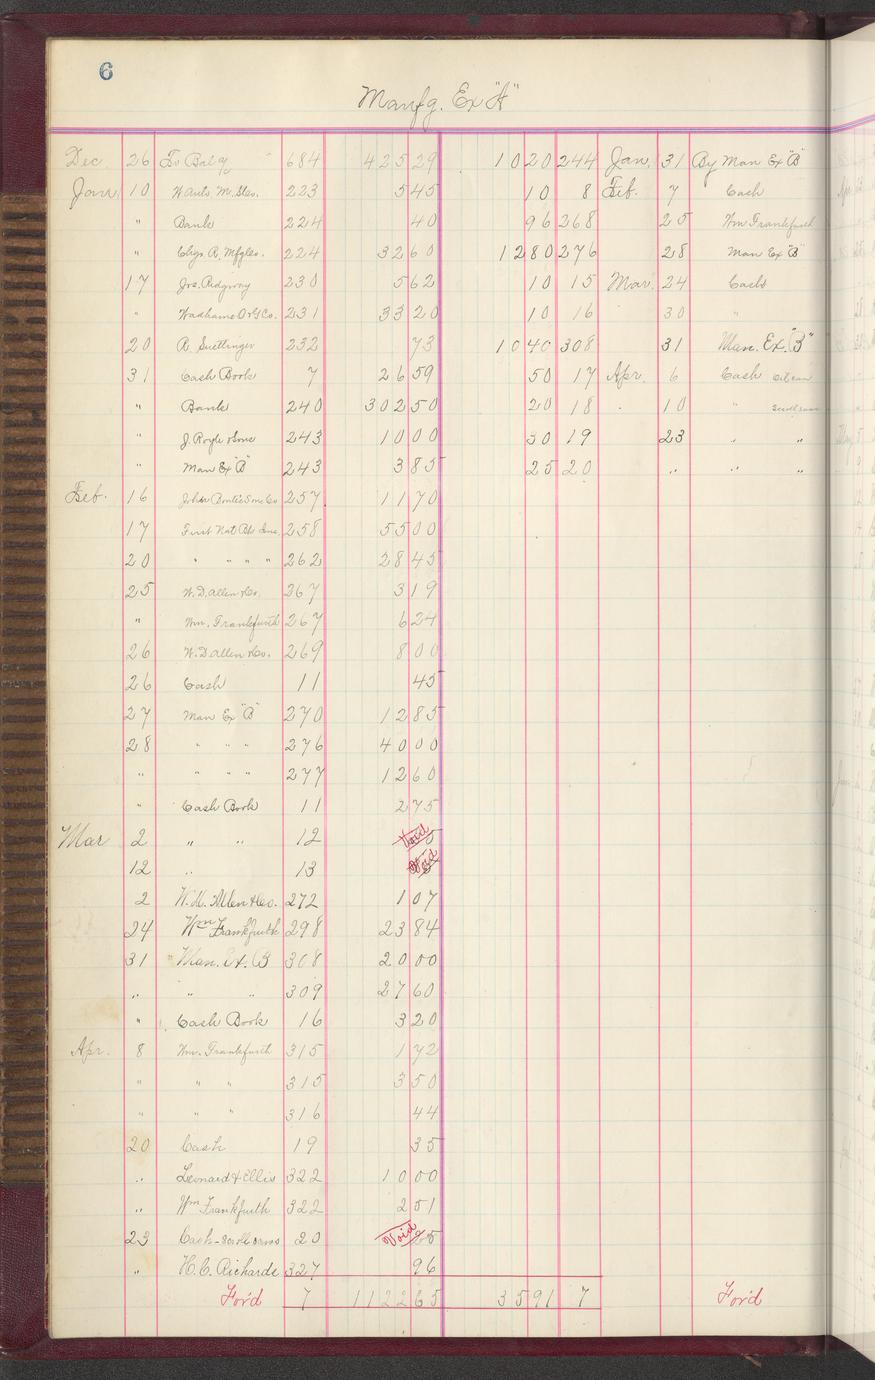 6
Manfg. Ex "A"
Dec. 26 To Bal 684 425 29 10 20 244 Jan. 31 By Man Ex "B"
Jan 10 223 5 45 10 8 Feb. 7 Cash
" Bank 224 40 96 268 25 Wm Frankfurth
" Chgs. R. Mfg 224 32 60 12 80 276 28 Man Ex "B"
17 Jos. Ridgway 230 5 62 10 15 Mar. 24 Cash
" Wadhams O & G Co. 231 33 20 10 16 30 "
20 R. Suettinger 232 73 10 40 308 31 Man. Ex. "B"
31 Cash Book 7 26 59 50 17 Apr. 6 Cash
" Bank 240 302 50 20 18 . 10 "
" J. Royle & Sons 243 10 00 30 19 23 " "
" Man Ex "B" 243 3 85 25 20 " " "
Feb. 16 257 11 70
17 First Nat Bk 258 55 00
20 " " " " 262 28 45
25 W. D. Allen & Co. 267 3 19
" Wm. Frankfurth 267 6 24
26 W. D. Allen & Co. 269 8 00
26 Cash 11 45
27 Man Ex "B" 270 12 85
28 " " " 276 40 00
" " " " 277 12 60
" Cash Book 11 2 75
Mar 2 " " 12 Void
12 " 13 Void
2 W. D. Allen & Co. 272 1 07
24 Wm Frankfurth 298 23 84
31 " Man. Ex. B 308 20 00
" " " 309 27 60
" Cash Book 16 3 20
Apr. 8 Wm. Frankfurth 315 1 72
" " " 315 3 50
" " " 316 44
20 Cash 19 35
" Leonard & Ellis 322 10 00
" Wm Frankfurth 322 2 51
23 Cash - 20 Void
" H. C. Richards 327 96
For'd 7 1122 65 35 91 7 For'd